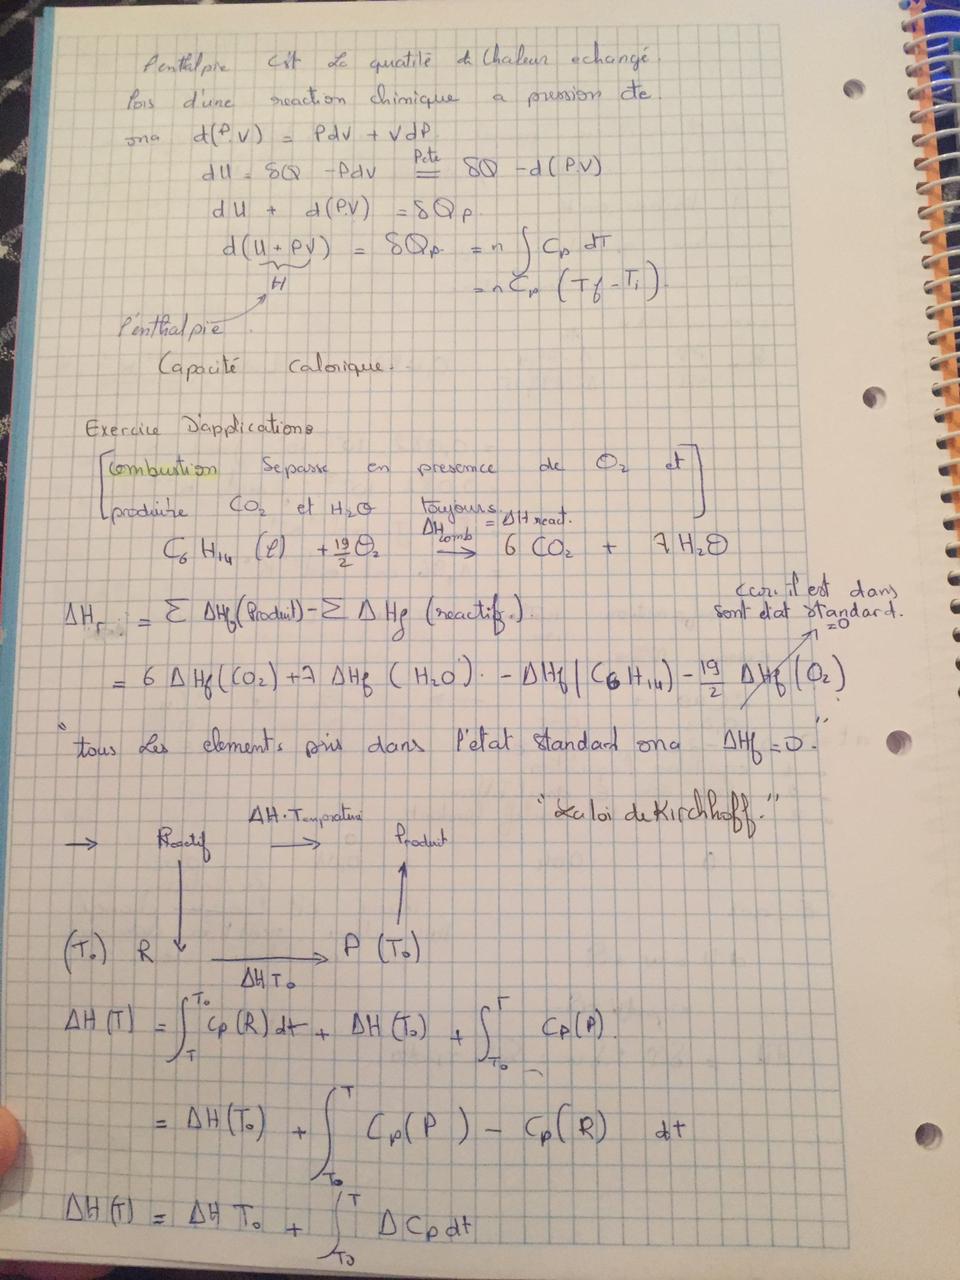 l'enthalpie c'est la quatité de chaleur echangé.
lors d'une reaction chimique a pression cte
ona d(P.V) = PdV + VdP
dU = δQ - PdV =(Pcte) δQ - d(P.V)
dU + d(P.V) = δQp
d(U + PV) = δQp = n ∫ Cp dT
H = n Cp (Tf - Ti)
l'enthalpie
Capacité Calorique.
Exercice D'applications
[Combustion Se passe en presence de O2 et
produire CO2 et H2O toujours.]
ΔHcomb = ΔH react.
C6 H14 (l) + 19/2 O2 → 6 CO2 + 7 H2O
car il est dans
sont d'etat standard.
ΔHr = Σ ΔHf (Produit) - Σ ΔHf (reactif.)
=0
= 6 ΔHf (CO2) + 7 ΔHf (H2O) - ΔHf (C6H14) - 19/2 ΔHf (O2)
"tous les elements pris dans l'état standard ona ΔHf = 0."
"La loi de Kirchhoff."
ΔH.Temperature
→ Réactif → Produit
(To) R → P (To)
ΔH To
ΔH (T) = ∫_T^To Cp (R) dt + ΔH (To) + ∫_To^T Cp (P)
= ΔH (To) + ∫_To^T Cp (P) - Cp (R) dt
ΔH (T) = ΔH To + ∫_To^T Δ Cp dt